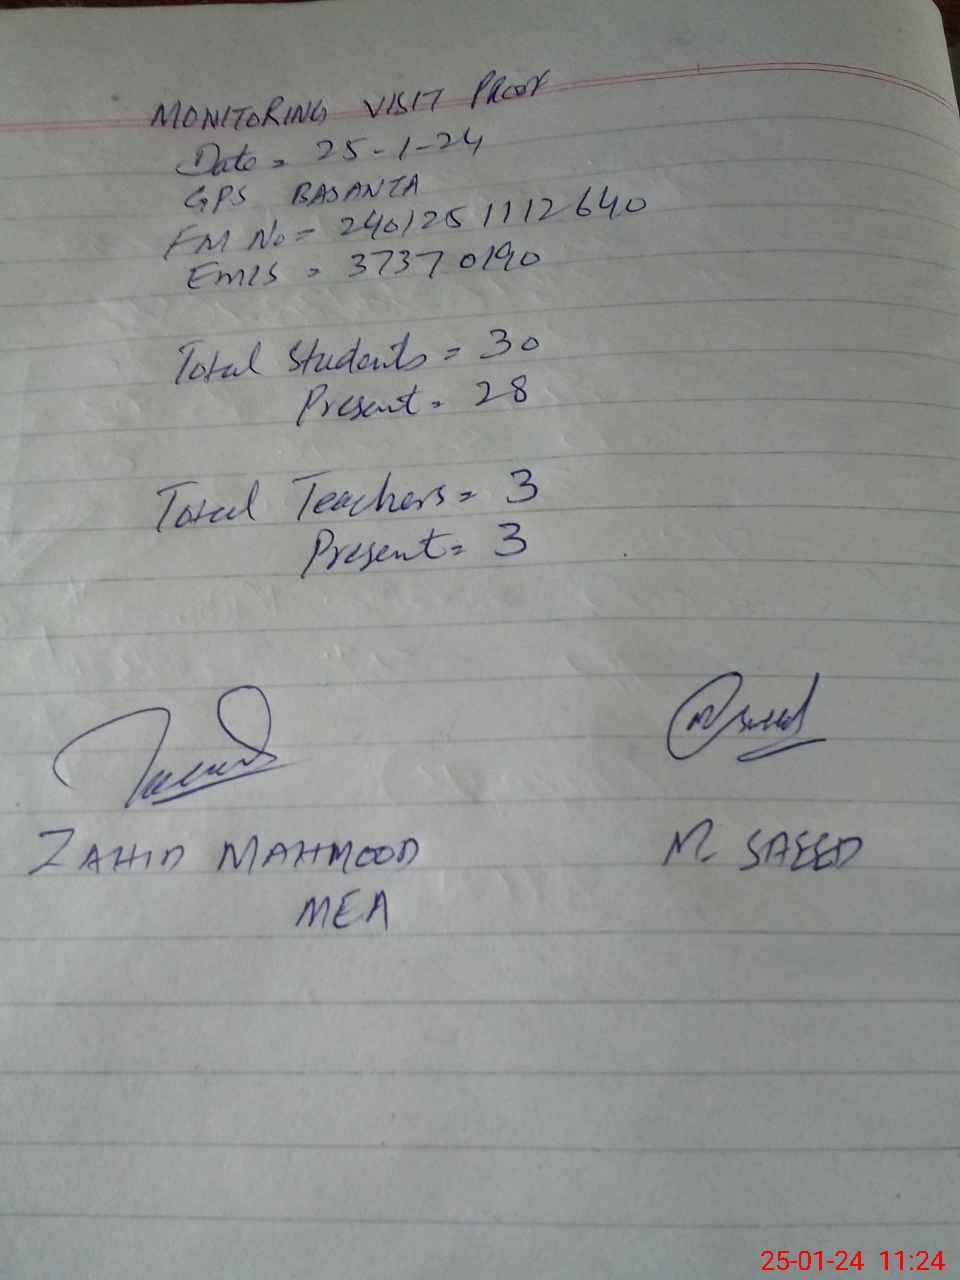 MONITORING VISIT PROOF
Date = 25-1-24
GPS BASANTA
FM No = 2401251112640
EMIS = 37370190
Total Students = 30
Present = 28
Total Teachers = 3
Present = 3
M Saeed
ZAHID MAHMOOD
M SAEED
MEA
25-01-24 11:24